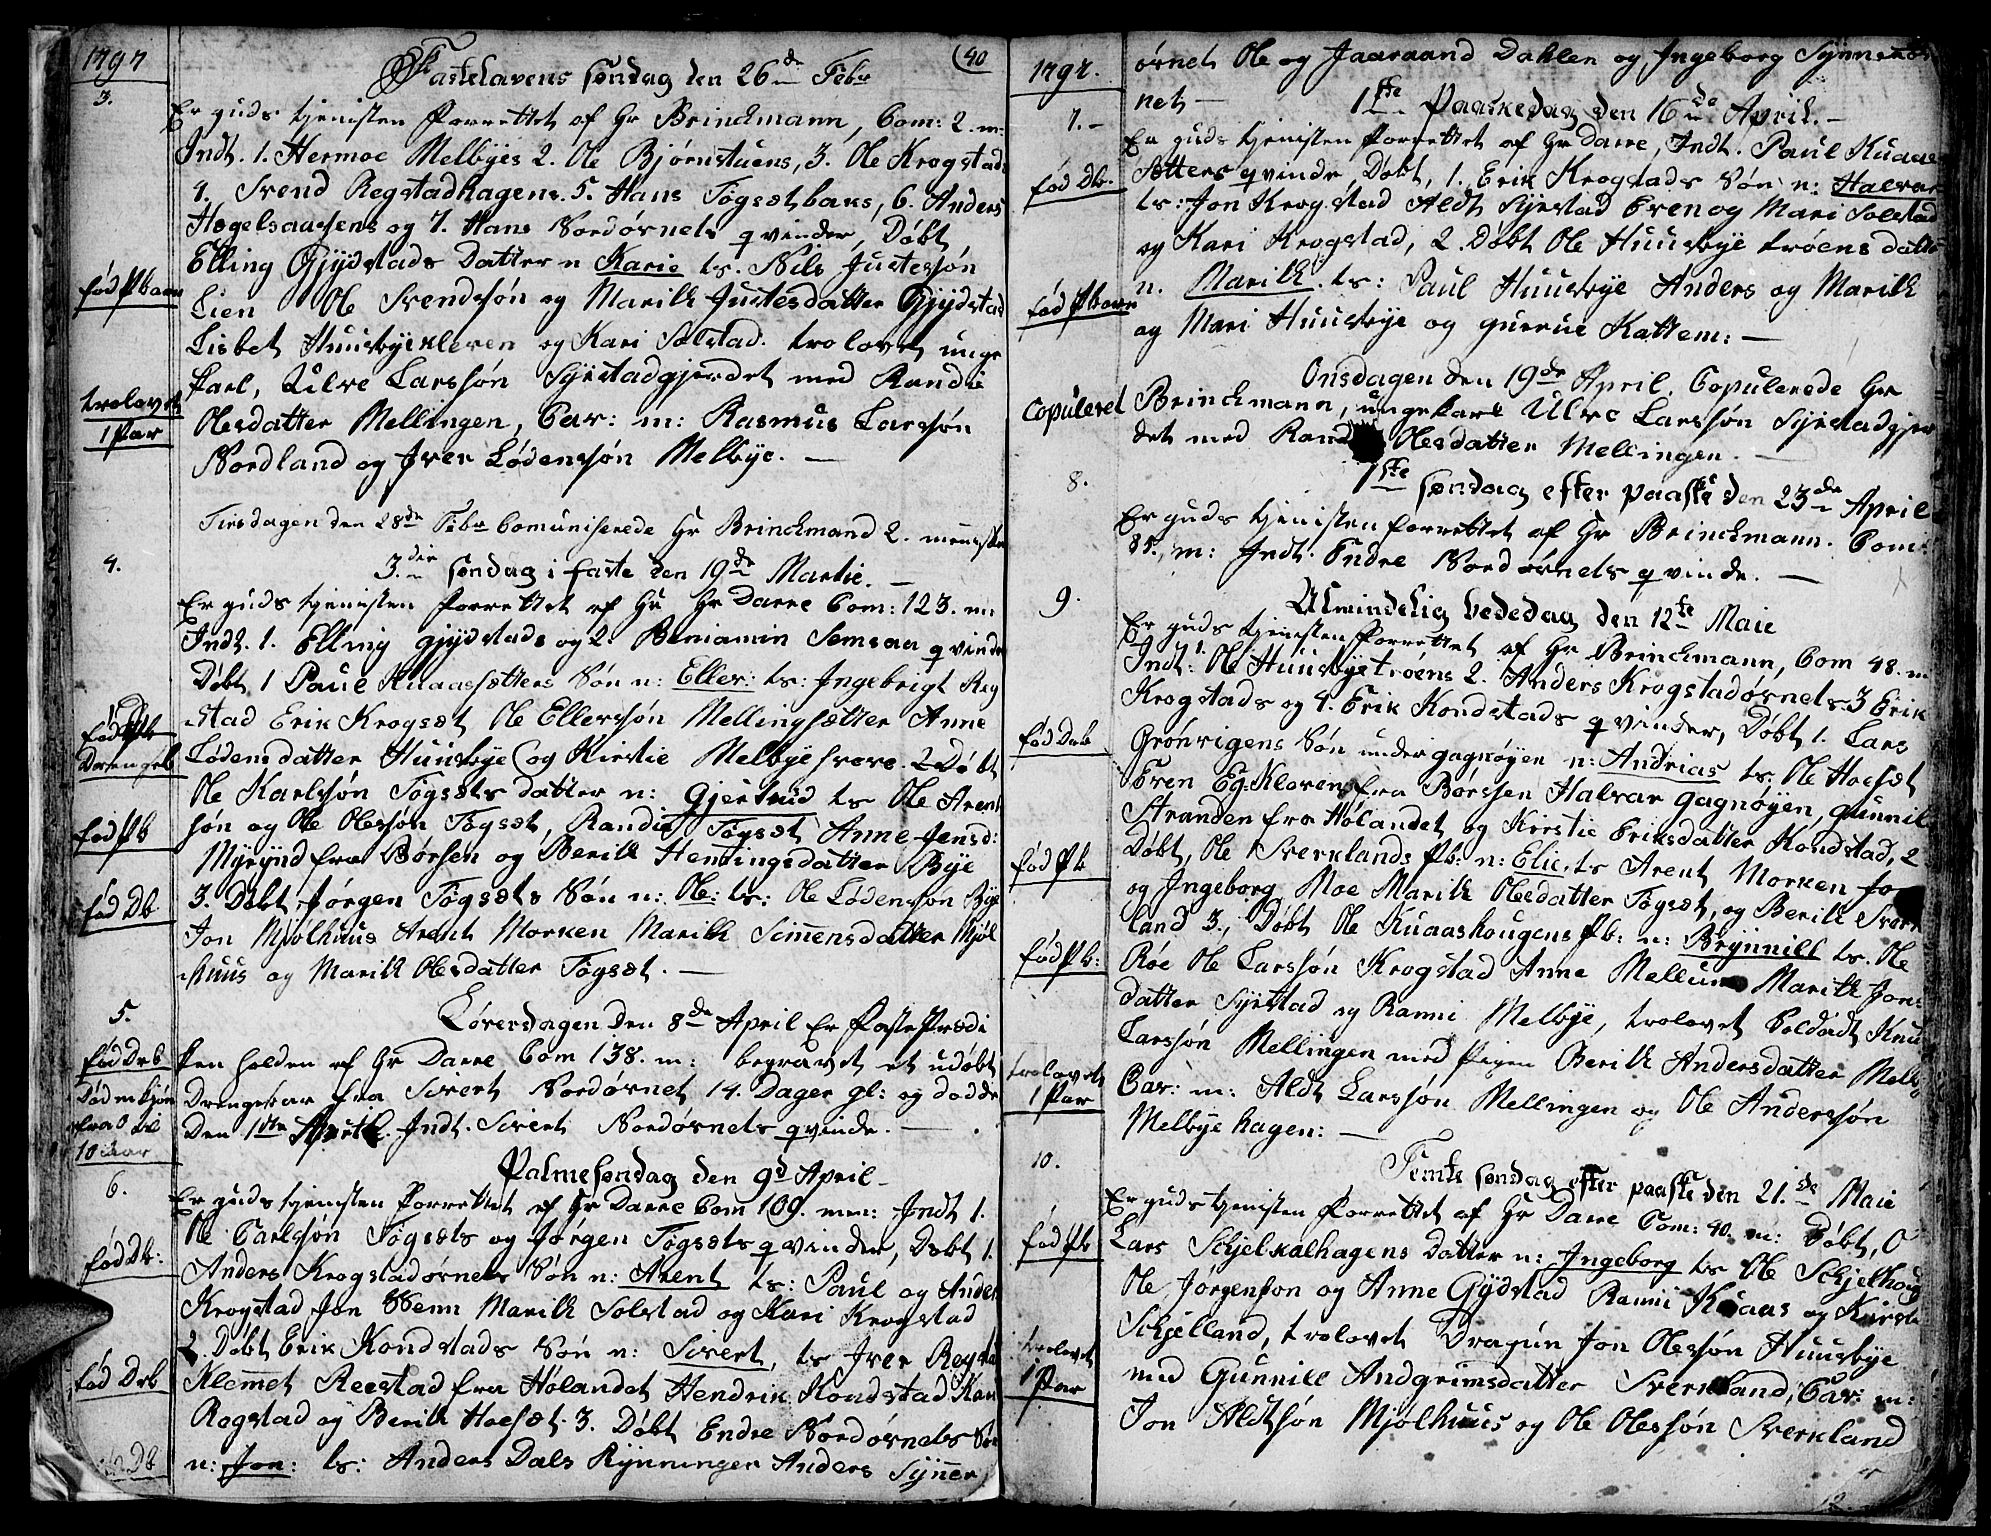 1797
(40
Fastelavens søndag den 26de Febr
3.
Er guds tjenisten forrettet af Hr Brinckmann, Com: 2. m:
Indt. 1. Hermoe Melbyes 2. Ole Bjørnstuens, 3. Ole Krogstads
4. Svend Regstadhagens. 5. Hans Togsætbaks, 6. Anders
Hegelsaasens og 7. Hans Nordørnets qvinder, Døbt
Elling Gjydstads Datter n Karie ts. Nils Justessøn
fød Pbarn
Lien Ole Svendssøn og Marith Justesdatter Gjydstad
Lisbet Huusbyekleven og Kari Solstad. trolovet unge
karl, Ulve Larssøn Syrstadgjerdet med Randie
trolovet
1 Par
Olesdatter Mellingen, Cav: m: Rasmus Larssøn
Nordland og Iver Lødenssøn Melbye. —
Tirsdagen den 28de Febr Comuniserede Hr Brinckmand 2. menniske
4.
3.die søndag i faste den 19de Martie. —
Er guds tjenisten forrettet af Hr Hr Darre Com: 123. m:
Indt. 1. Elling gjydstads og 2. Beniamin Semsaa qvinde
Døbt 1 Paul Kuaassætters Søn n: Eller: ts: Ingebrigt Reg
stad Erik Krogsæt Ole Ellerssøn Mellingsætter Anne
fød Pb
Drengeb
Lødensdatter Huusbye og Kirstie Melbye 2 Døbt
Ole Karlssøn Togsæts datter n: Gjertrud ts Ole Arent
søn og Ole Olessøn Togsæt, Randie Togsæt Anne Jensd:
fød Pb
Myrynd fra Børsen og Berith Henningsdatter Bye
3. Døbt Jørgen Togsæts Søn n: Ole: ts: Ole Lødenssøn Bye
fød Db
Jon Mjølhuus Arent Morken Marith Simensdatter Mjøl
huus og Marith Olesdatter Togsæt. —
5.
Løversdagen den 8de April Er fastePrædi
fød Drb
ken holden af Hr Darre Com 138. m: begravet et udøbt
Død mkjøn
Drengebar fra Sivert Nordørnet 14. Dager gl: og dødde
fra 0 til
10 Aar
Den 1ste April. Indt. Sivert Nordørnets qvinde. —
6.
Palmesøndag den 9d April —
Er guds tjenisten forrettet af Hr Darre Com 109. men: Indt 1.
Ole Carlssøn Togsæts og Jørgen Togsæts qvinder, Døbt 1.
fød Db:
Anders Krogstadørnets Søn n: Arent ts: Paul og Anders
Krogstad Jon Wenn Marith Solstad og Kari Krogstad
2. Døbt Erik Kondstads Søn n: Sivert, ts Iver Regstad
fød Drb
Klemmet Reestad fra Hølandet Hendrik Kondstad Kari
Rogstad og Berith Hoesæt. 3. Døbt Endre Nordørnets Søn
Db
n: Jon: ts: Anders Dals Rynninger Anders Synner
1797.
ørnet Ole og Jaaraand Dahlen og Ingeborg Synnerør
net —
7. —
1ste Paaskedag den 16de April. —
Er guds tjenisten forrettet af Hr Darre, Indt. Paul Kuaas
fød Db.
Sætters qvinde, Døbt, 1. Erik Krogstads Søn n: Halvar
ts: Jon Krogstad Aldt Syrstad Even og Mari Solstad
og Kari Krogstad, 2. Døbt Ole Huusbye trøens datter
fød Pbarn
n. Marith. ts: Paul Huusbye Anders og Marith
og Mari Huusbye og gurrue Kattem: —
Onsdagen den 19de April. Copulerede Hr
Copuleret
Brinckmann, ungekarl Ulve Larssøn Syrstadgjer
det med Rand Olesdatter Mellingen. —
8.
1ste søndag efter paaske den 23de April
Er guds tjenisten forrettet af Hr Brinckmann. Com:
85., m: Indt. Endre Nordørnets qvinde. —
9.
Almindelig bededag den 12te Maie
Er guds tjenisten forrettet af Hr Brinckmann, Com 48. m
Indt: 1. Ole Huusbyetrøens 2. Anders Krogstadørnets 3 Erik
Krogstads og 4. Erik Kondstads qvinder, Døbt 1. Lars
fød Drb
Grønvigens Søn under gagnøyen n: Andrias ts; Ole Hoesæt
Even Eg:Kleven fra Børssen Halvar gagnøyen, gunnil
Stranden fra Hølandet og Kirstie Eriksdatter Kondstad, 2
fød Pb
Døbt, Ole Sverklands Pb: n: Elie. ts Arent Morken
og Ingeborg Moe Marith Olesdatter Togsæt, og Berith Sverk
land 3., Døbt Ole Kuaashougens Pb: n: Brynnild ts. Ole
fød Pb:
Røe Ole Larssøn Krogstad Anne Mellum Marith Jons
datter Syrstad og Ranni Melbye, trolovet Soldadt Knud
trolovet
1 Par
Larssøn Mellingen med Pigen Berith Andersdatter Melby
Cav: m: Aldt Larssøn Mellingen og Ole Anderssøn
Melbye hagen: —
10.
Femte søndag efter paaske den 21.de Maie
Er guds tjenisten forrettet af Hr Darre Com: 40. m: Døbt,
fød Pb
Lars Schjelkalhagens Datter n: Ingeborg ts Ole Schjelhoug
Ole Jørgensøn og Anne Gydstad Ranni Kuaas og Kirsti
trolovet
1 Par
Schjelland, trolovet Dragun Jon Olessøn Huusbye
med Gunnill Andgrimsdatter Sverkland, Cav: m:
Jon Aldtsøn Mjølhuus og Ole Olessøn Sverkland